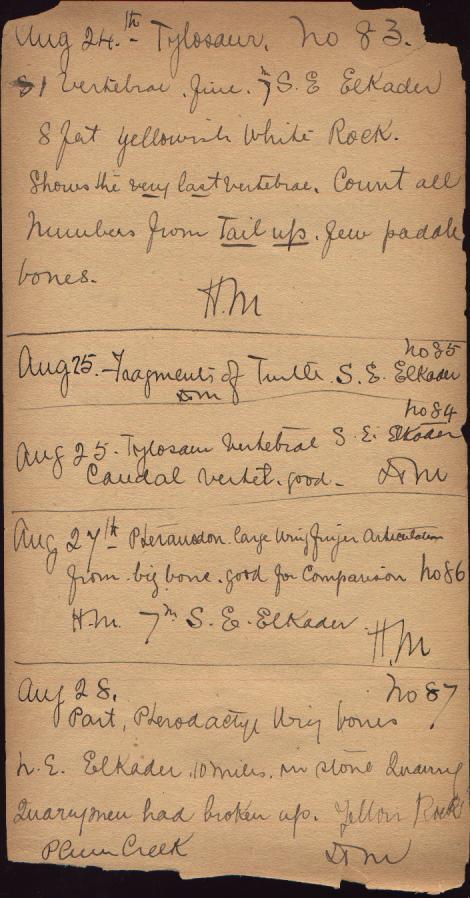 Aug 24.th - Tylosaur. No 83.
81 Vertebrae. fine. 7m S.E Elkader
8 feet yellowish White Rock.
Shows the very last vertebrae. Count all
Numbers from Tail up. few paddle
bones.
H.M
No 85
Aug 25. - Fragments of Turtle. S.E. Elkader
DM
No 84
Aug 25. Tylosaur Vertebrae S.E. Elkader
Caudal vertet. good - DM
Aug 27th Pteranodon large Wing finger Articulation
from big bone. good for Comparison No 86
H.M. 7m S.E. Elkader.
H.M
Aug 28. No 87
Part, Pterodactyl Wing bones
N.E. Elkader. 10 miles. in stone Quarry
Quarrymen had broken up. Yellow Rock
Plum Creek DM